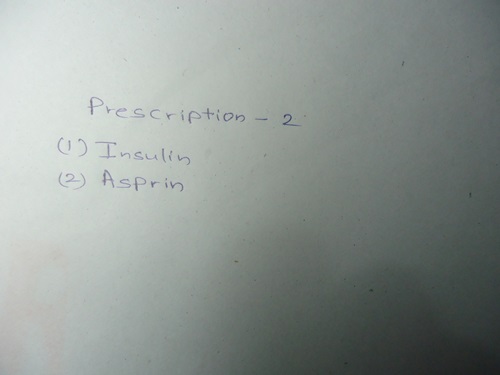 Prescription - 2
(1) Insulin
(2) Asprin